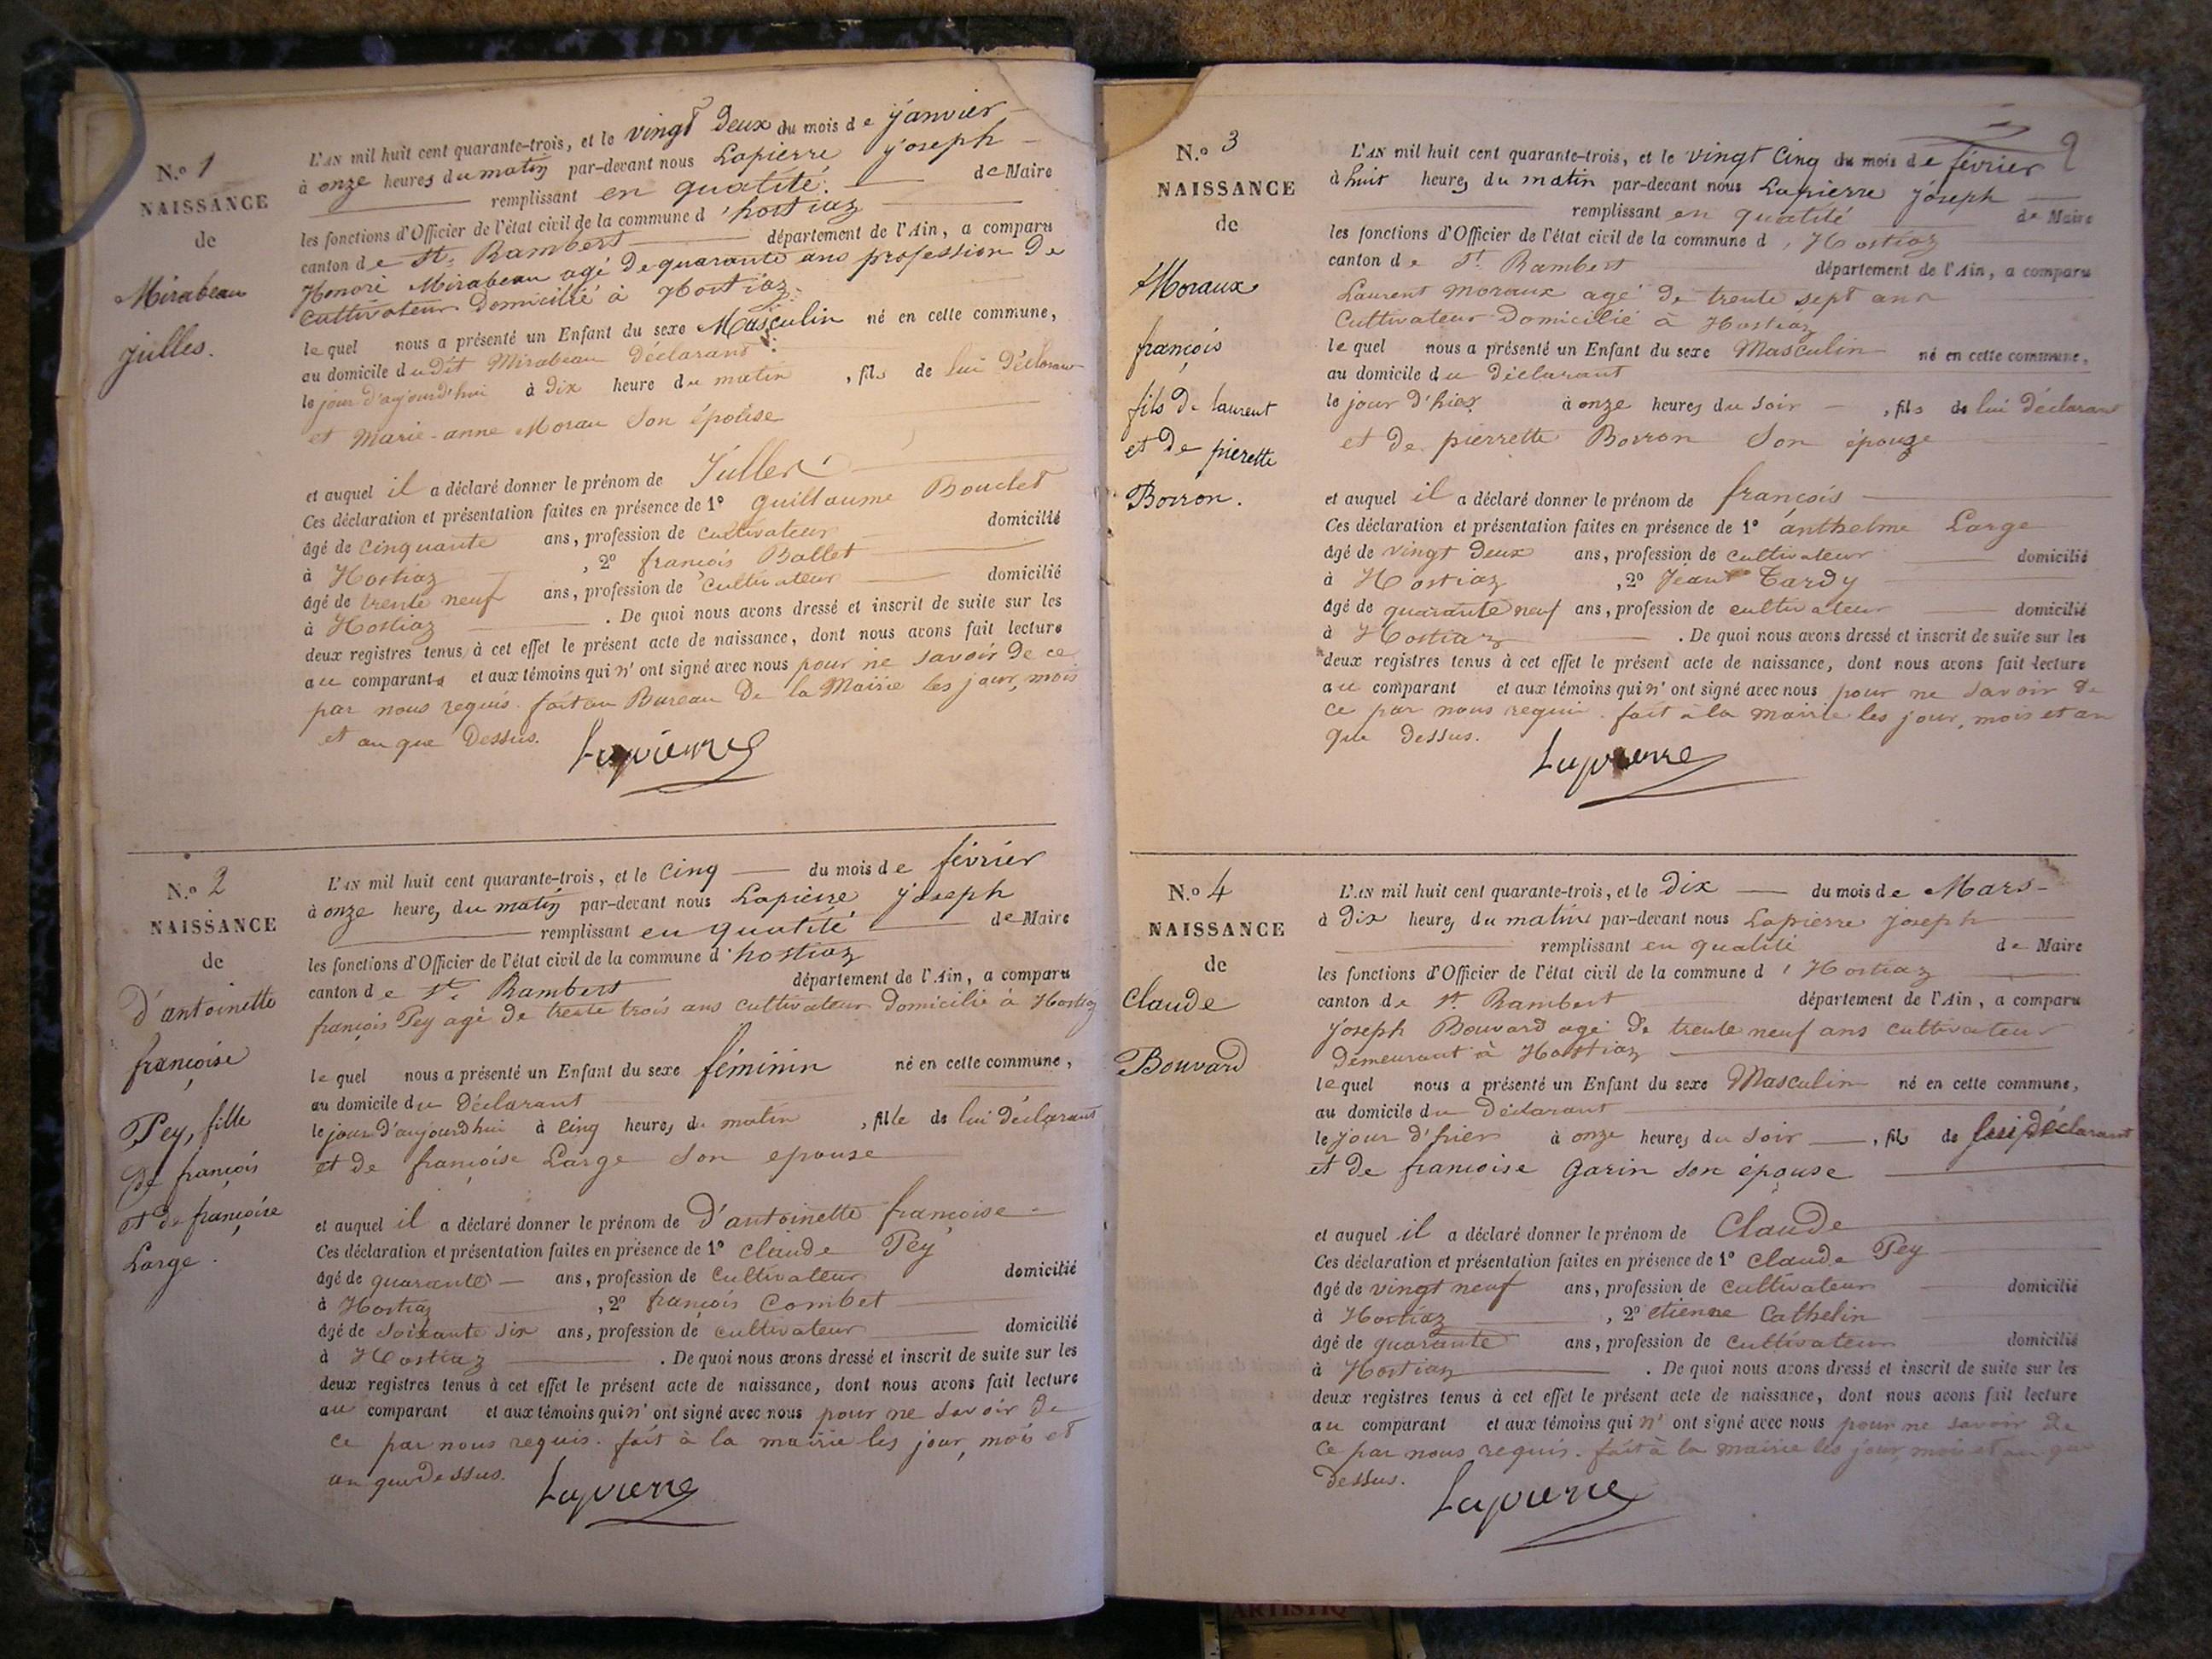 N.º 1
NAISSANCE
de
Mirabeau
Julles.
L'AN mil huit cent quarante-trois, et le vingt Deux du mois de janvier
à onze heures du matin par-devant nous Lapierre joseph
remplissant en qualité de Maire
les fonctions d'Officier de l'état civil de la commune d'hostiaz
canton de St. Rambert département de l'Ain, a comparu
Honoré Mirabeau agé de quarante ans profession de
cultivateur Domicilié à Hostiaz
lequel nous a présenté un Enfant du sexe Masculin né en cette commune,
au domicile dudit Mirabeau Déclarant
le jour d'aujourd'hui à dix heure du matin, fils de lui Déclarant
et Marie-anne Morau Son épouse
et auquel il a déclaré donner le prénom de Julles
Ces déclaration et présentation faites en présence de 1º guillaume Bouclet
âgé de cinquante ans, profession de cultivateur domicilié
à Hostiaz, 2º françois Ballet
âgé de trente neuf ans, profession de cultivateur domicilié
à Hostiaz. De quoi nous avons dressé et inscrit de suite sur les
deux registres tenus à cet effet le présent acte de naissance, dont nous avons fait lecture
au comparants et aux témoins qui n'ont signé avec nous pour ne savoir de ce
par nous requis. fait au Bureau De la Mairie les jour, mois
et an que Dessus.
Lapierre
N.º 2
NAISSANCE
de
D'antoinette
françoise
Pey, fille
de françois
et de françoise
Large.
L'AN mil huit cent quarante-trois, et le cinq du mois de février
à onze heures du matin par-devant nous Lapierre joseph
remplissant en qualité de Maire
les fonctions d'Officier de l'état civil de la commune d'hostiaz
canton de St. Rambert département de l'Ain, a comparu
françois Pey agé de trente trois ans cultivateur domicilié à Hostiaz
lequel nous a présenté un Enfant du sexe féminin né en cette commune,
au domicile du Déclarant
le jour d'aujourdhui à cinq heures du matin, fille de lui déclarant
et de françoise Large Son epouse
et auquel il a déclaré donner le prénom de D'antoinette françoise
Ces déclaration et présentation faites en présence de 1º claude Pey
âgé de quarante ans, profession de Cultivateur domicilié
à Hostiaz, 2º françois Combet
âgé de soixante six ans, profession de cultivateur domicilié
à Hostiaz. De quoi nous avons dressé et inscrit de suite sur les
deux registres tenus à cet effet le présent acte de naissance, dont nous avons fait lecture
au comparant et aux témoins qui n'ont signé avec nous pour ne savoir de
ce par nous requis. fait à la mairie les jour, mois et
an que dessus.
Lapierre
2
N.º 3
NAISSANCE
de
Moraux
françois
fils de laurent
et de pierette
Borron.
L'AN mil huit cent quarante-trois, et le vingt Cinq du mois de février
à huit heures du matin par-devant nous Lapierre joseph
remplissant en qualité de Maire
les fonctions d'Officier de l'état civil de la commune d'Hostiaz
canton de St. Rambert département de l'Ain, a comparu
Laurent Moraux agé de trente sept ans
Cultivateur Domicilié à Hostiaz
lequel nous a présenté un Enfant du sexe Masculin né en cette commune,
au domicile du déclarant
le jour d'hier à onze heures du soir, fils de lui déclarant
et de pierrette Borron Son épouze
et auquel il a déclaré donner le prénom de françois
Ces déclaration et présentation faites en présence de 1º anthelme Large
âgé de vingt deux ans, profession de cultivateur domicilié
à Hostiaz, 2º Jean Tardy
âgé de quarante neuf ans, profession de cultivateur domicilié
à Hostiaz. De quoi nous avons dressé et inscrit de suite sur les
deux registres tenus à cet effet le présent acte de naissance, dont nous avons fait lecture
au comparant et aux témoins qui n'ont signé avec nous pour ne savoir de
ce par nous requis. fait à la mairie les jour, mois et an
que dessus.
Lapierre
N.º 4
NAISSANCE
de
Claude
Bouvard
L'AN mil huit cent quarante-trois, et le Dix du mois de Mars
à Dix heures du matin par-devant nous Lapierre joseph
remplissant en qualité de Maire
les fonctions d'Officier de l'état civil de la commune d'Hostiaz
canton de St Rambert département de l'Ain, a comparu
joseph Bouvard agé de trente neuf ans cultivateur
demeurant à Hostiaz
lequel nous a présenté un Enfant du sexe Masculin né en cette commune,
au domicile du Déclarant
le jour d'hier à onze heures du soir, fils de lui déclarant
et de françoise garin son épouse
et auquel il a déclaré donner le prénom de Claude
Ces déclaration et présentation faites en présence de 1º claude Pey
âgé de vingt neuf ans, profession de cultivateur domicilié
à Hostiaz, 2º etienne Cathelin
âgé de quarante ans, profession de cultivateur domicilié
à Hostiaz. De quoi nous avons dressé et inscrit de suite sur les
deux registres tenus à cet effet le présent acte de naissance, dont nous avons fait lecture
au comparant et aux témoins qui n'ont signé avec nous pour ne savoir de
ce par nous requis. fait à la mairie les jour, mois et an que
dessus.
Lapierre
ARTISTIQ